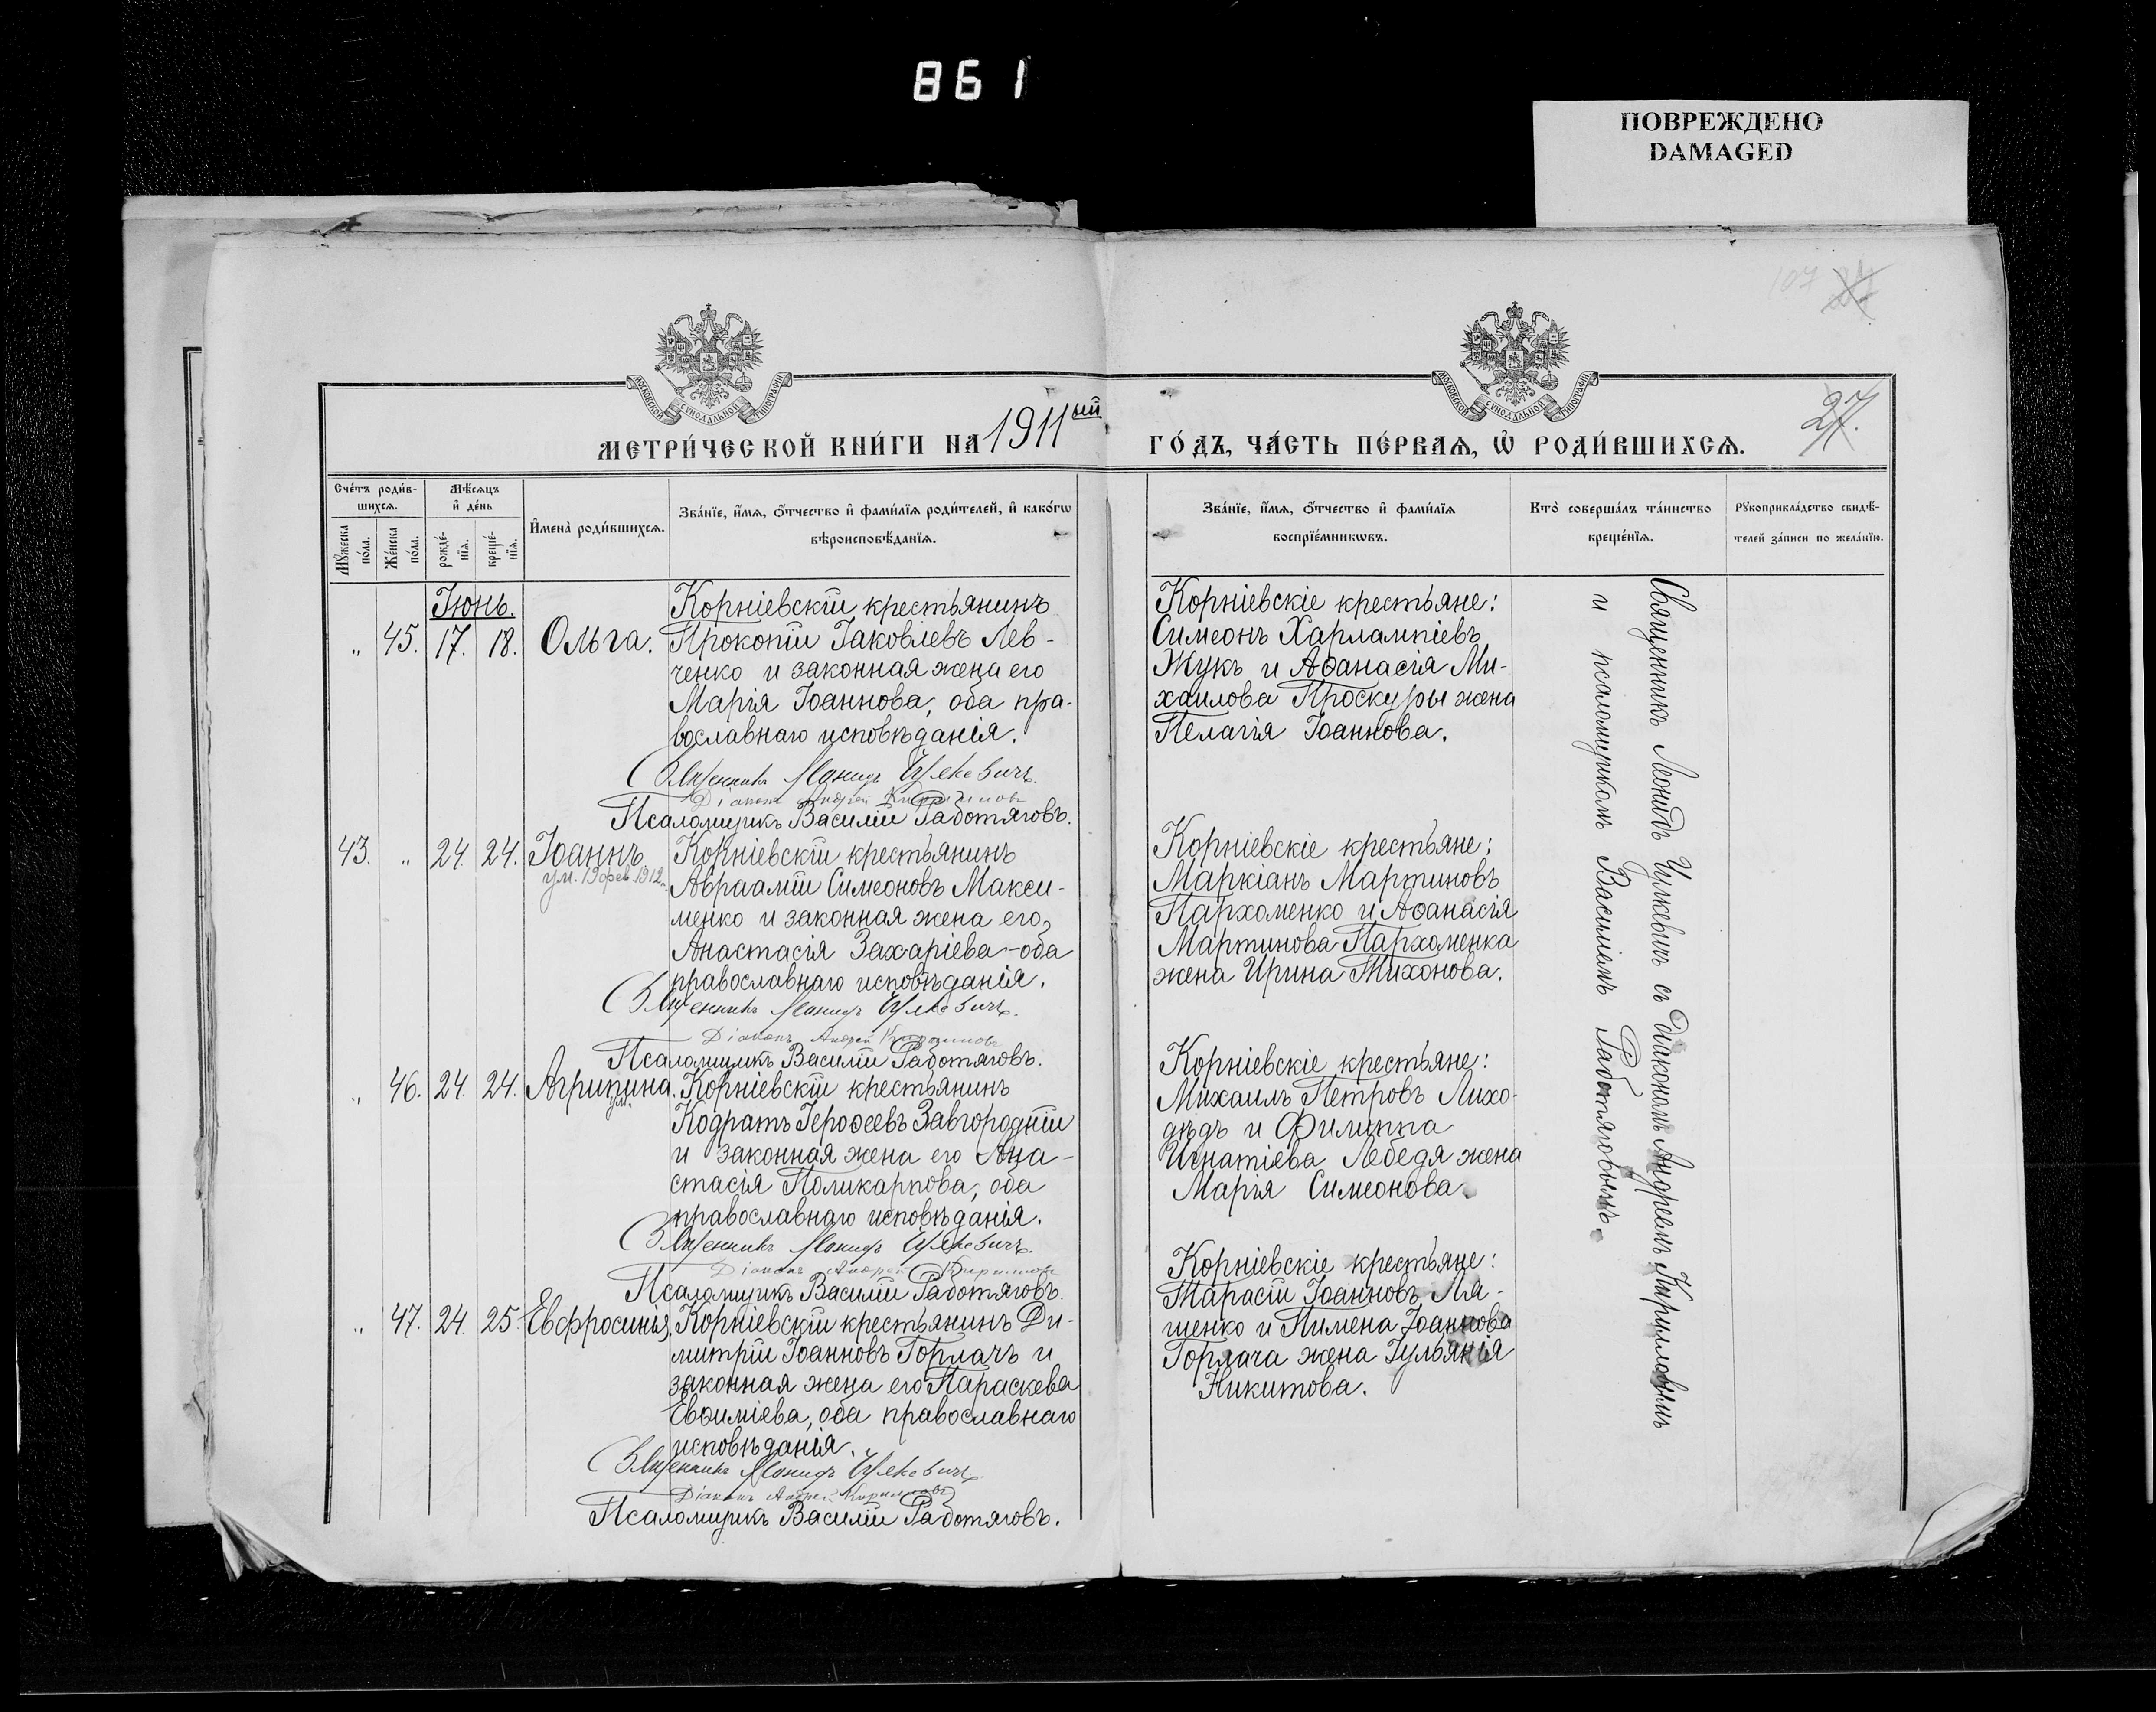 861
ПОВРЕЖДЕНО
DAMAGED
107
27.
МОСКОВСКОЙ СѴНОДАЛЬНОЙ ТИПОГРАФІИ
МОСКОВСКОЙ СѴНОДАЛЬНОЙ ТИПОГРАФІИ
МЕТРИ́ЧЕСКОЙ КНИ́ГИ НА 1911ый ГО́ДЪ, ЧА́СТЬ ПЕ́РВАѦ, Ѡ҆ РОДИ́ВШИХСѦ.
Сче́тъ роди́в-
шихсѧ.
Мꙋ́жеска
по́ла.
Же́нска
по́ла.
Мѣ́сѧцъ
и҆ де́нь
рожде́-
нїѧ.
креще́-
нїѧ.
И҆мена̀ роди́вшихсѧ.
Зва́нїе, и҆́мѧ, ѻ҆́тчество и҆ фами́лїѧ роди́телей, и҆ како́гѡ
вѣроисповѣ́данїѧ.
Зва́нїе, и҆́мѧ, ѻ҆́тчество и҆ фами́лїѧ
воспрїе́мникѡвъ.
Кто̀ соверша́лъ та́инство
креще́нїѧ.
Рꙋкоприкла́дство свидѣ́-
телей за́писи по жела́нїю.
Іюнь.
„ 45. 17. 18. Ольга.
Корніевскій крестьянинъ
Прокопій Іаковлевъ Лев-
ченко и законная жена его
Марія Іоаннова, оба пра-
вославнаго исповѣданія.
Священникъ Леонидъ Цулкевичъ.
Діаконъ Андрей Кириловъ
Псаломщикъ Василій Работяговъ.
Корніевскіе крестьяне:
Симеонъ Харлампіевъ
Жукъ и Аѳанасія Ми-
хаилова Проскуры жена
Пелагія Іоаннова.
43. „ 24. 24. Іоаннъ
ум. 19 фев. 1912
Корніевскій крестьянинъ
Авраамій Симеоновъ Макси-
менко и законная жена его
Анастасія Захаріева - оба
православнаго исповѣданія.
Священникъ Леонидъ Цулкевичъ.
Діаконъ Андрей Кириловъ
Псаломщикъ Василій Работяговъ.
Корніевскіе крестьяне:
Маркіанъ Мартиновъ
Пархоменко и Аѳанасія
Мартинова Пархоменка
жена Ирина Тихонова.
„ 46. 24. 24. Агрипина.
ум.
Корніевскій крестьянинъ
Кодратъ Іероѳеевъ Завгородній
и законная жена его Ана-
стасія Поликарпова, оба
православнаго исповѣданія.
Священникъ Леонидъ Цулкевичъ.
Діаконъ Андрей Кириловъ
Псаломщикъ Василій Работяговъ.
Корніевскіе крестьяне:
Михаилъ Петровъ Лихо-
дѣдъ и Филиппа
Игнатіева Лебедя жена
Марія Симеонова.
„ 47. 24. 25. Евфросинія.
Корніевскій крестьянинъ Ди-
митрій Іоанновъ Горлачъ и
законная жена его Параскева
Евѳиміева, оба православнаго
исповѣданія.
Священникъ Леонидъ Цулкевичъ.
Діаконъ Андрей Кириловъ
Псаломщикъ Василій Работяговъ.
Корніевскіе крестьяне:
Тарасій Іоанновъ Ля-
щенко и Пимена Іоаннова
Горлача жена Іульянія
Никитова.
Священникъ Леонидъ Цулкевичъ съ Діакономъ Андреемъ Кириловымъ
и псаломщикомъ Василіемъ Работяговымъ.